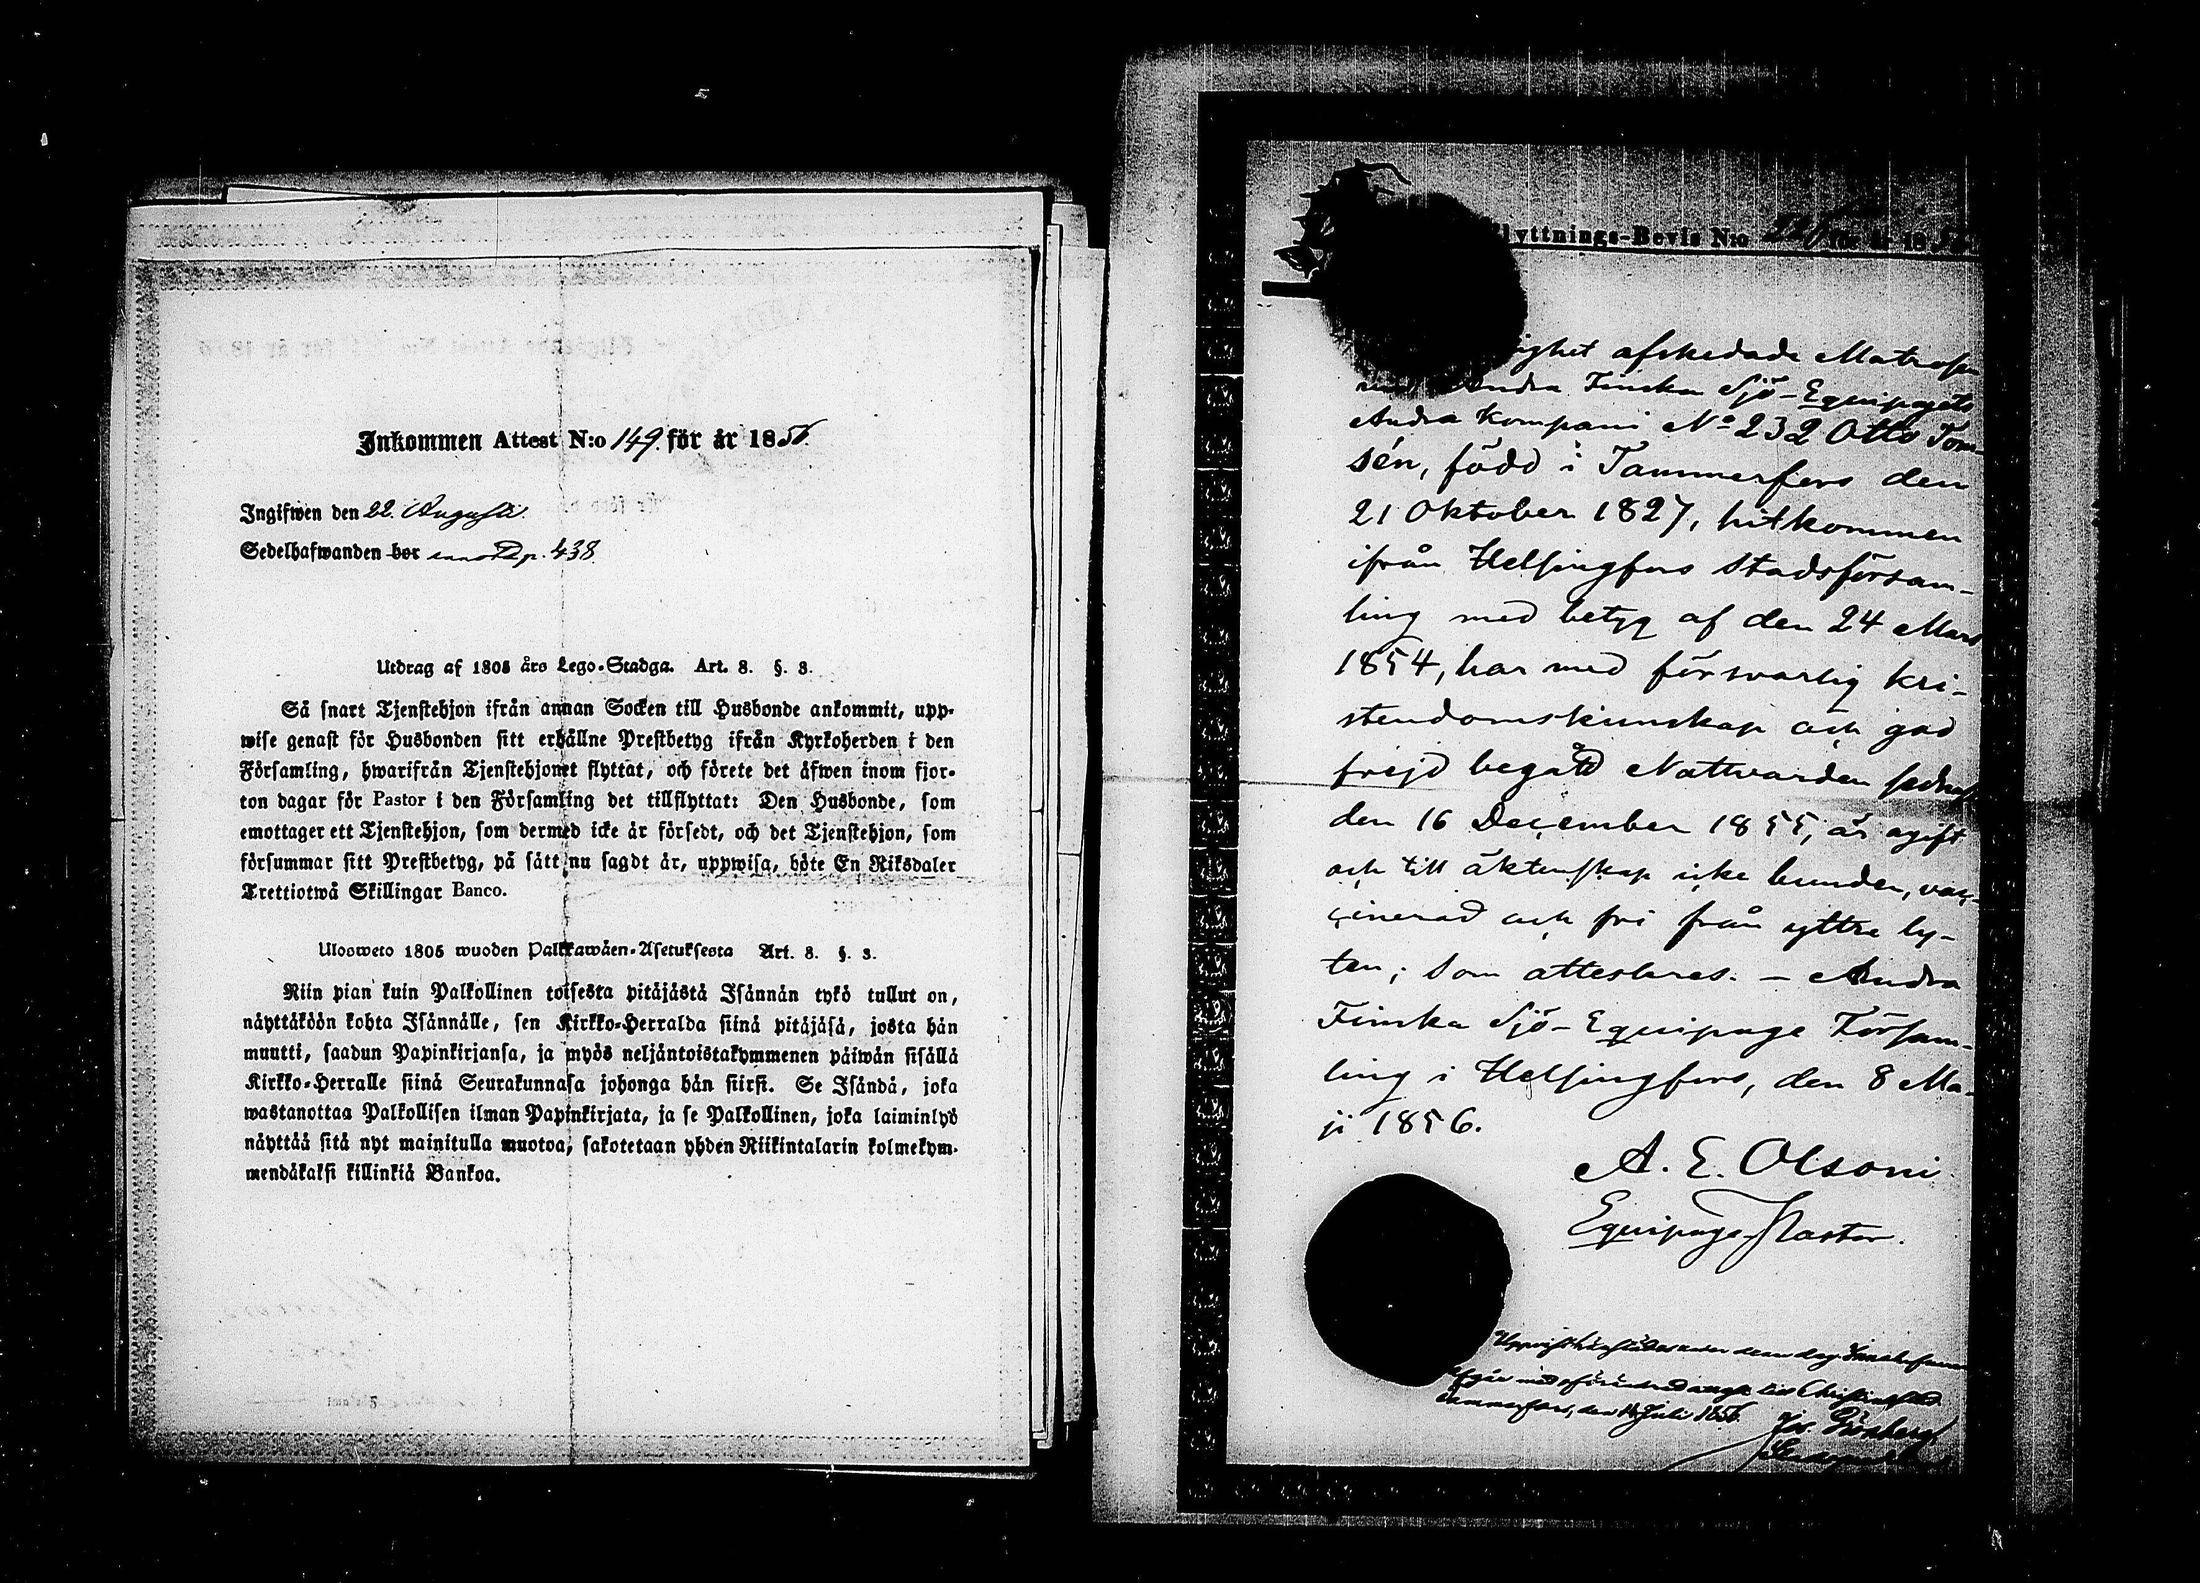 Inkommen Attest N:o 149 för år 1856.
Ingifwen den 22. Augusti.
Sedelhafwanden bor p. 438.
Utdrag af 1805 års Lego-Stadga. Art. 8. §. 3.
Så snart Tjenstehjon ifrån annan Socken till Husbonde ankommit, upp-
wise genast för Husbonden sitt erhållne Prestbetyg ifrån Kyrkoherden i den
Församling, hwarifrån Tjenstehjonet flyttat, och förete det äfwen inom fjor-
ton dagar för Pastor i den Församling det tillflyttat: Den Husbonde, som
emottager ett Tjenstehjon, som dermed icke är försedt, och det Tjenstehjon, som
försummar sitt Prestbetyg, på sätt nu sagdt är, uppwisa, böte En Riksdaler
Trettiotwå Skillingar Banco.
Ulosweto 1805 wuoden Palkkawäen-Asetuksesta Art. 8. §. 3.
Niin pian kuin Palkollinen toisesta pitäjästä Isännän tykö tullut on,
näyttäköön kohta Isännälle, sen Kirkko-Herralda siinä pitäjäsä, josta hän
muutti, saadun Papinkirjansa, ja myös neljäntoistakymmenen päiwän sisällä
Kirkko-Herralle siinä Seurakunnasa johonga hän siirsi. Se Isändä, joka
wastanottaa Palkollisen ilman Papinkirjata, ja se Palkollinen, joka laiminlyö
näyttää sitä nyt mainitulla muotoa, sakotetaan yhden Riikintalarin kolmekym-
mendäkaksi killinkiä Bankoa.
Flyttnings-Bevis N:o för år 185
afskedade Matrosen
Andra Finska Sjö-Equipagets
Andra Kompani No 232 Otto Tom-
sén, född i Tammerfors den
21 Oktober 1827, hitkommen
ifrån Helsingfors Stadsförsam-
ling med betyg af den 24 Mars
1854, har med försvarlig kri-
stendomskunskap och god
frejd begått Nattvarden sednast
den 16 December 1855, är ogift
och till äktenskap icke bunden, vac-
cinerad och fri från yttre ly-
ten; som attesteras. — Andra
Finska Sjö-Equipage Försam-
ling i Helsingfors, den 8 Ma-
ji 1856.
A. E. Olsoni
Equipage-Pastor.
Christinestad
Tammerfors, den Juli 1856.